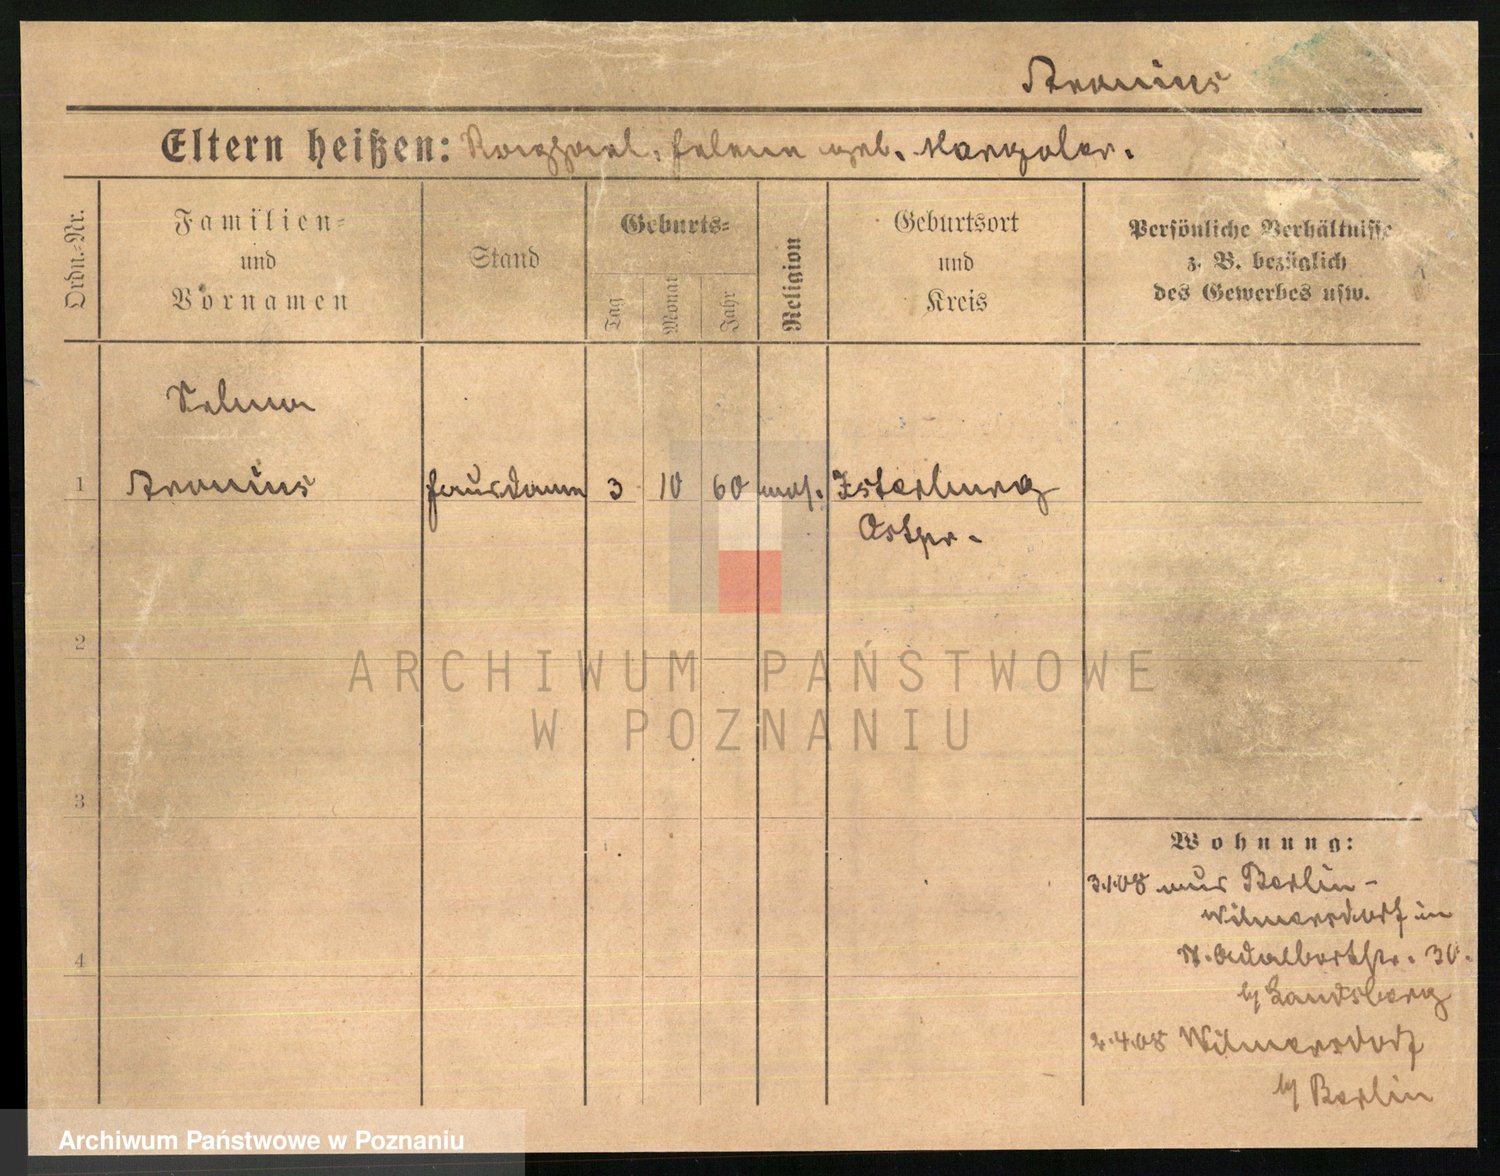 Aronius
Eltern heißen: Raphael, Helene geb. Margoler.
Ordn.-Nr.
Familien-
und
Vornamen
Stand
Geburts-
Tag
Monat
Jahr
Religion
Geburtsort
und
Kreis
Persönliche Verhältnisse
z. B. bezüglich
des Gewerbes usw.
Selma
1 Aronius Hausdame 3 10 60 mos. Isterburg
Ostpr.
2
3
4
Wohnung:
3.1.08 aus Berlin-
Wilmersdorf in
St. Adalbertstr. 30.
b/ Landsberg
2.4.08 Wilmersdorf
b/ Berlin
ARCHIWUM PAŃSTWOWE
W POZNANIU
Archiwum Państwowe w Poznaniu